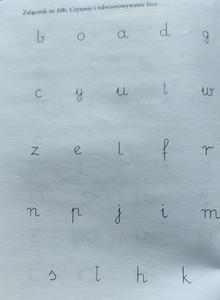 Załącznik nr 10b. Czytanie i odwzorowywanie liter
b o a d g
c y u t w
z e l f r
n p j i m
s l h k